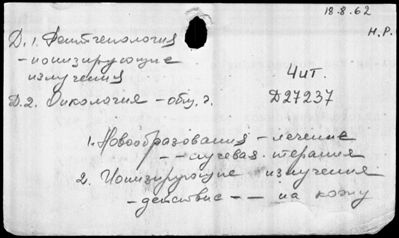 18.8.62
Н.Р.
Д. 1. Рентгенология
- ионизирующие
излучения
Чит.
Д.2. Онкология - общ. ч.
Д27237
1. Новообразования - лечение
- - лучевая терапия
2. Ионизирующие излучения
- действие - - на кожу